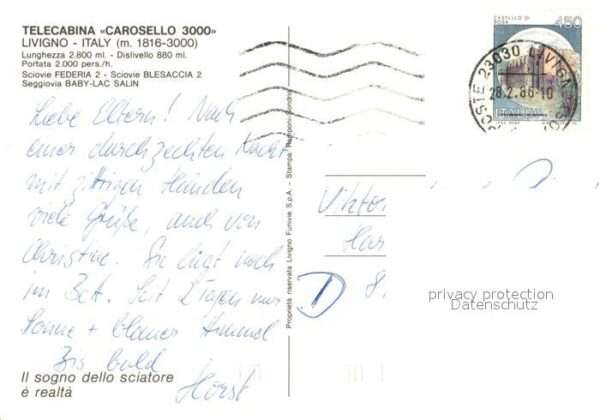 TELECABINA «CAROSELLO 3000»
LIVIGNO - ITALY (m. 1816-3000)
Lunghezza 2.800 ml. - Dislivello 880 ml.
Portata 2.000 pers./h.
Sciovie FEDERIA 2 - Sciovie BLESACCIA 2
Seggiovia BABY-LAC SALIN
Liebe Eltern! Nach
einer durchzechten Nacht
mit zittrigen Händen
viele Grüße, auch von
Christine. Sie liegt noch
im Bett. Seit 2 Tagen nur
Sonne + blauer Himmel
Bis bald
Horst
Il sogno dello sciatore
è realtà
Proprietà riservata Livigno Funivie S.p.A. - Stampa Ramponi-Sondrio
CASTELLO DI
450
POSTE 23030 LIVIGNO
28.2.86-10
Vikto
Har
8.
D
privacy protection
Datenschutz